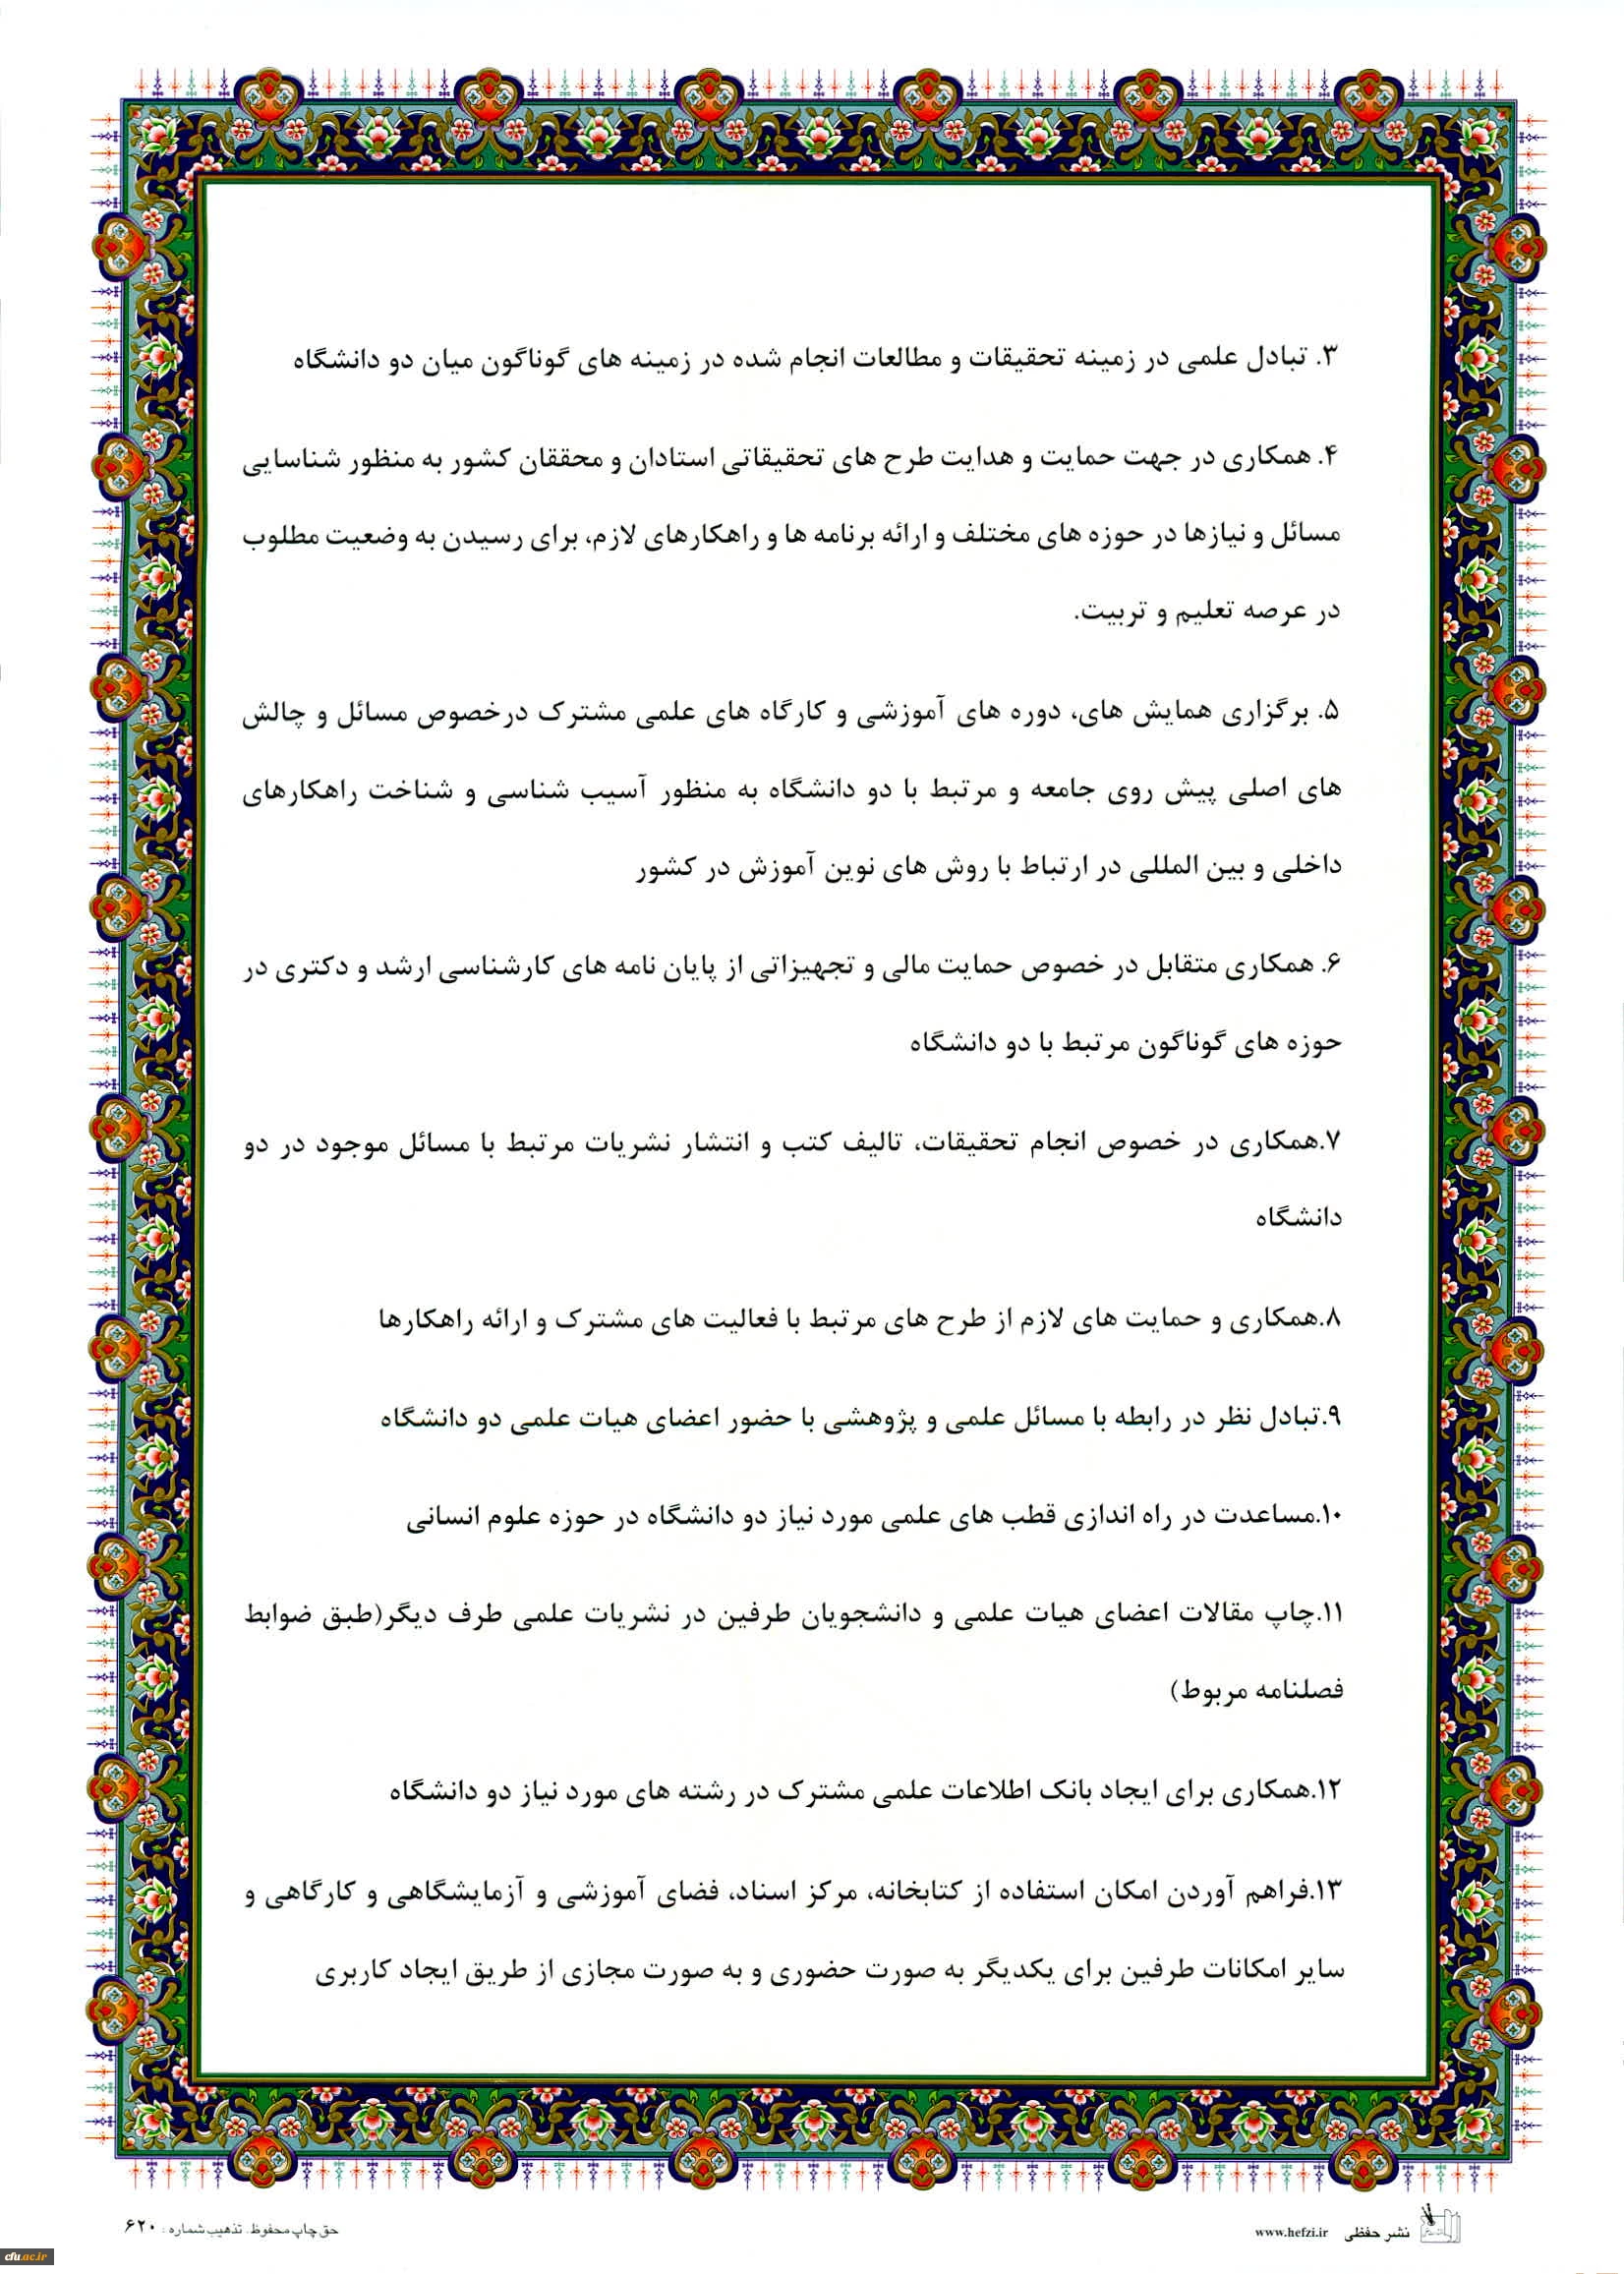 ۳. تبادل علمی در زمینه تحقیقات و مطالعات انجام شده در زمینه های گوناگون میان دو دانشگاه
۴. همکاری در جهت حمایت و هدایت طرح های تحقیقاتی استادان و محققان کشور به منظور شناسایی
مسائل و نیازها در حوزه های مختلف و ارائه برنامه ها و راهکارهای لازم، برای رسیدن به وضعیت مطلوب
در عرصه تعلیم و تربیت.
۵. برگزاری همایش های، دوره های آموزشی و کارگاه های علمی مشترک درخصوص مسائل و چالش
های اصلی پیش روی جامعه و مرتبط با دو دانشگاه به منظور آسیب شناسی و شناخت راهکارهای
داخلی و بین المللی در ارتباط با روش های نوین آموزش در کشور
۶. همکاری متقابل در خصوص حمایت مالی و تجهیزاتی از پایان نامه های کارشناسی ارشد و دکتری در
حوزه های گوناگون مرتبط با دو دانشگاه
۷.همکاری در خصوص انجام تحقیقات، تالیف کتب و انتشار نشریات مرتبط با مسائل موجود در دو
دانشگاه
۸.همکاری و حمایت های لازم از طرح های مرتبط با فعالیت های مشترک و ارائه راهکارها
۹.تبادل نظر در رابطه با مسائل علمی و پژوهشی با حضور اعضای هیات علمی دو دانشگاه
۱۰.مساعدت در راه اندازی قطب های علمی مورد نیاز دو دانشگاه در حوزه علوم انسانی
۱۱.چاپ مقالات اعضای هیات علمی و دانشجویان طرفین در نشریات علمی طرف دیگر(طبق ضوابط
فصلنامه مربوط)
۱۲.همکاری برای ایجاد بانک اطلاعات علمی مشترک در رشته های مورد نیاز دو دانشگاه
۱۳.فراهم آوردن امکان استفاده از کتابخانه، مرکز اسناد، فضای آموزشی و آزمایشگاهی و کارگاهی و
سایر امکانات طرفین برای یکدیگر به صورت حضوری و به صورت مجازی از طریق ایجاد کاربری
نشر حفظی www.hefzi.ir
حق چاپ محفوظ. تذهیب شماره : ۶۲۰
cfu.ac.ir